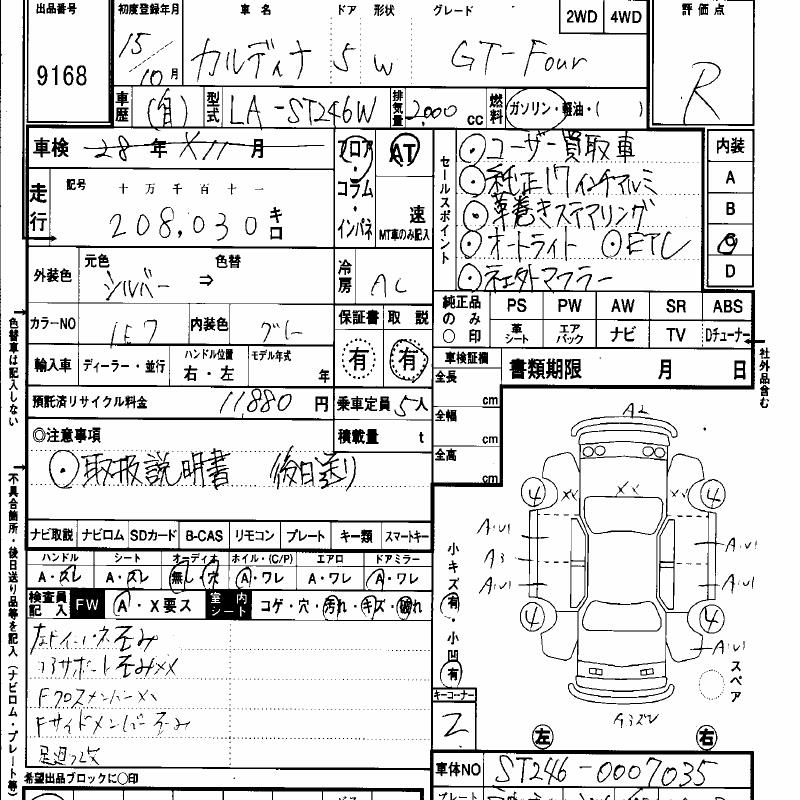 出品番号 初度登録年月 車名 ドア 形状 グレード 2WD 4WD 評価点
9168 15 10月 カルディナ 5 W GT-Four R
車歴 (自) 型式 LA-ST246W 排気量 2,000 cc 燃料 ガソリン・軽油・( )
車検 28年 X11月 フロア・コラム・インパネ AT セールスポイント
⊙ユーザー買取車
⊙純正17インチアルミ
⊙革巻きステアリング
⊙オートライト ⊙ETC
⊙社外マフラー
内装
A
B
C
D
走行 記号 十 万 千 百 十 一
208,030 キロ
速
MT車のみ記入
外装色 元色 シルバー ⇒ 色替 冷房 AC
カラーNO 1E7 内装色 グレー 保証書 取説
有 有
輸入車 ディーラー・並行 ハンドル位置 右・左 モデル年式 年
預託済リサイクル料金 11,880 円 乗車定員 5人
積載量 t
純正品のみ○印 PS PW AW SR ABS
革シート エアバック ナビ TV Dチューナー
車検証欄 書類期限 月 日
全長 cm
全幅 cm
全高 cm
◎注意事項
⊙取扱説明書 後日送り
ナビ取説 ナビロム SDカード B-CAS リモコン プレート キー類 スマートキー
ハンドル シート オーディオ ホイル・(C/P) エアロ ドアミラー
A・スレ A・スレ 無し・穴 A・ワレ A・ワレ A・ワレ
検査員記入 FW A・X要ス 室内シート コゲ・穴・汚れ・キズ・破れ
コアサポート歪みXX
Fクロスメンバー
Fサイドメンバー歪み
希望出品ブロックに○印
色替車は記入しない
不具合箇所・後日送り品等を記入(ナビロム・プレート等)
社外品含む
A2
XX XX
4 4
4 4
A・U1
A3
A・U1
A・U1
A・U1
A・U1
小キズ有・小凹有
スペア
キーコーナー
Z
左 右
車体NO ST246-0007035